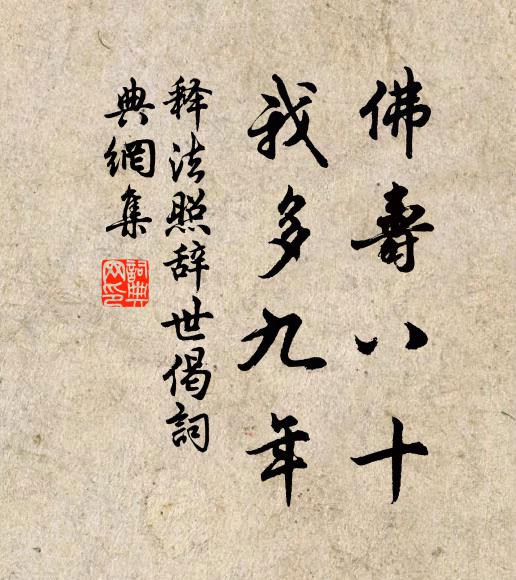 佛壽八十
我多九年
释法照辞世偈詞
典網集
詞典
网印